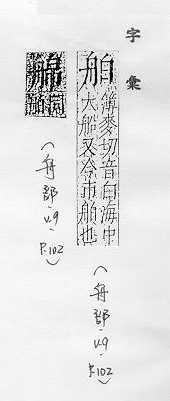 字彙
舶 簿麥切音白海中
大船又今市舶也
(舟部 v.9 P.102)
(舟部 v.9 P.102)